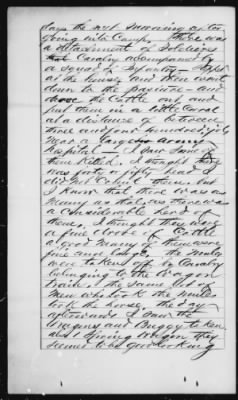 says the next morning as to
going into Camp. there was
a detachment of Soldiers
Cavalry accompanied by
a squad of Infantry
at the house, and then went
down to the pasture – and
drove the Cattle out and
put them in a little Corral
at a distance of between
three and four hundred yds
near a large Army
Hospital – I saw some of
them killed. I thought there
was forty or fifty head I
did not Count them, but
I know that there was as
many as that, as there was
a considerable herd of
them, I thought they were
a fine drove of Cattle
a good many of them were
fine and large. The mules
were taken off by Cavalry
belonging to the Wagon
train. The same lot of
men who took the mules
took the horses. the day
afterwards I saw the
and Buggy taken
also 1 Spring Wagon they
seemed to be good looking